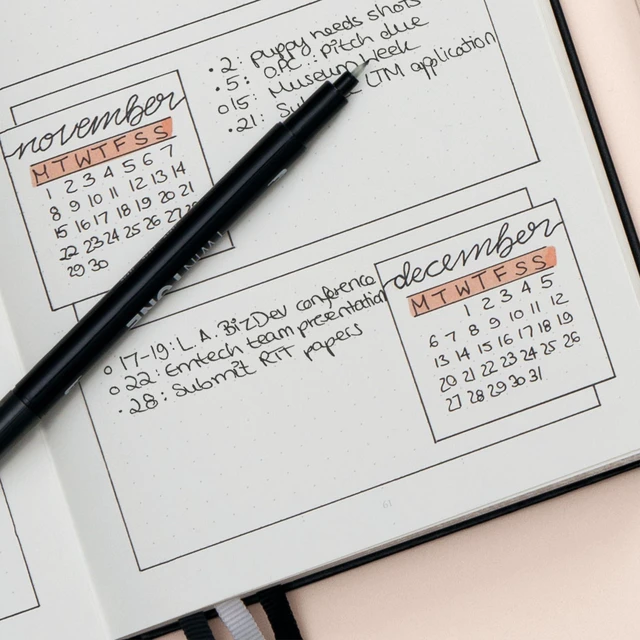 • 2: puppy needs shots
• 5: pitch due
o 15: Museum week
• 21: UTM application
november
M T W T F S S
1 2 3 4 5 6 7
8 9 10 11 12 13 14
15 16 17 18 19 20 21
22 23 24 25 26 27
29 30
december
M T W T F S S
1 2 3 4 5
6 7 8 9 10 11 12
13 14 15 16 17 18 19
20 21 22 23 24 25 26
27 28 29 30 31
o 17-19: L.A. BizDev conference
o 22: Emtech team presentation
• 28: Submit RTT papers
61